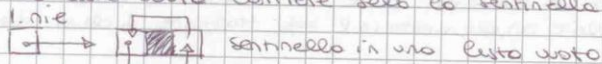 contiene solo la sentinella
l.nie
sentinella in una lista vuota